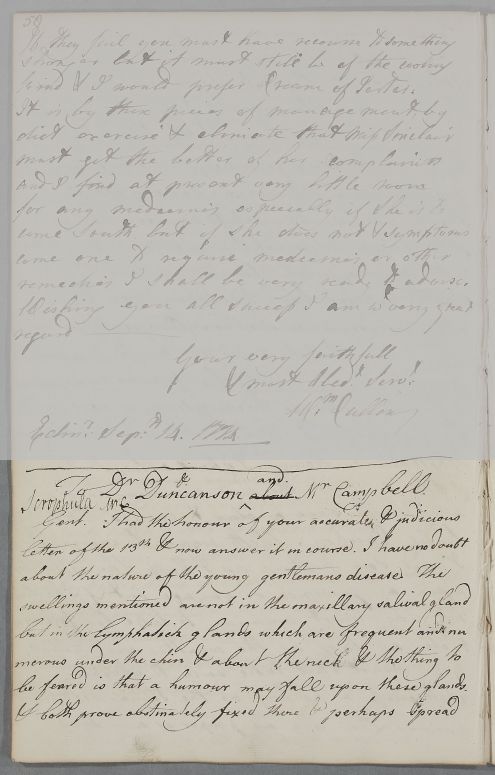 50
If they fail you must have recourse to something
stronger but it must still be of the
kind & I would prefer Cream of Tartar.
It is by these pieces of management by
diet exercise & climate that Miss Sinclair
must get the better of her complaints
and I find at present very little room
for any medecines especially if she is to
come south but if she does not & symptoms
come one to require medecines or other
remedies I shall be very ready to advise.
Wishing you all success I am w very great
regard
Your very faithfull
& most Obed.t Serv.t
W.m Cullen
Edin.r Sep.r 14. 1774
To Dr Duncanson about and Mr Campbell.
Scrophula
Gent. I had the honour of your accurate & judicious
letter of the 13th & now answer it in course. I have no doubt
about the nature of the young gentlemans disease The
swellings mentioned are not in the maxillary salival gland
but in the Lymphatick glands which are frequent and nu
merous under the chin & about the neck & the thing to
be feared is that a humour may fall upon these glands
& both prove obstinately fixed there & perhaps spread